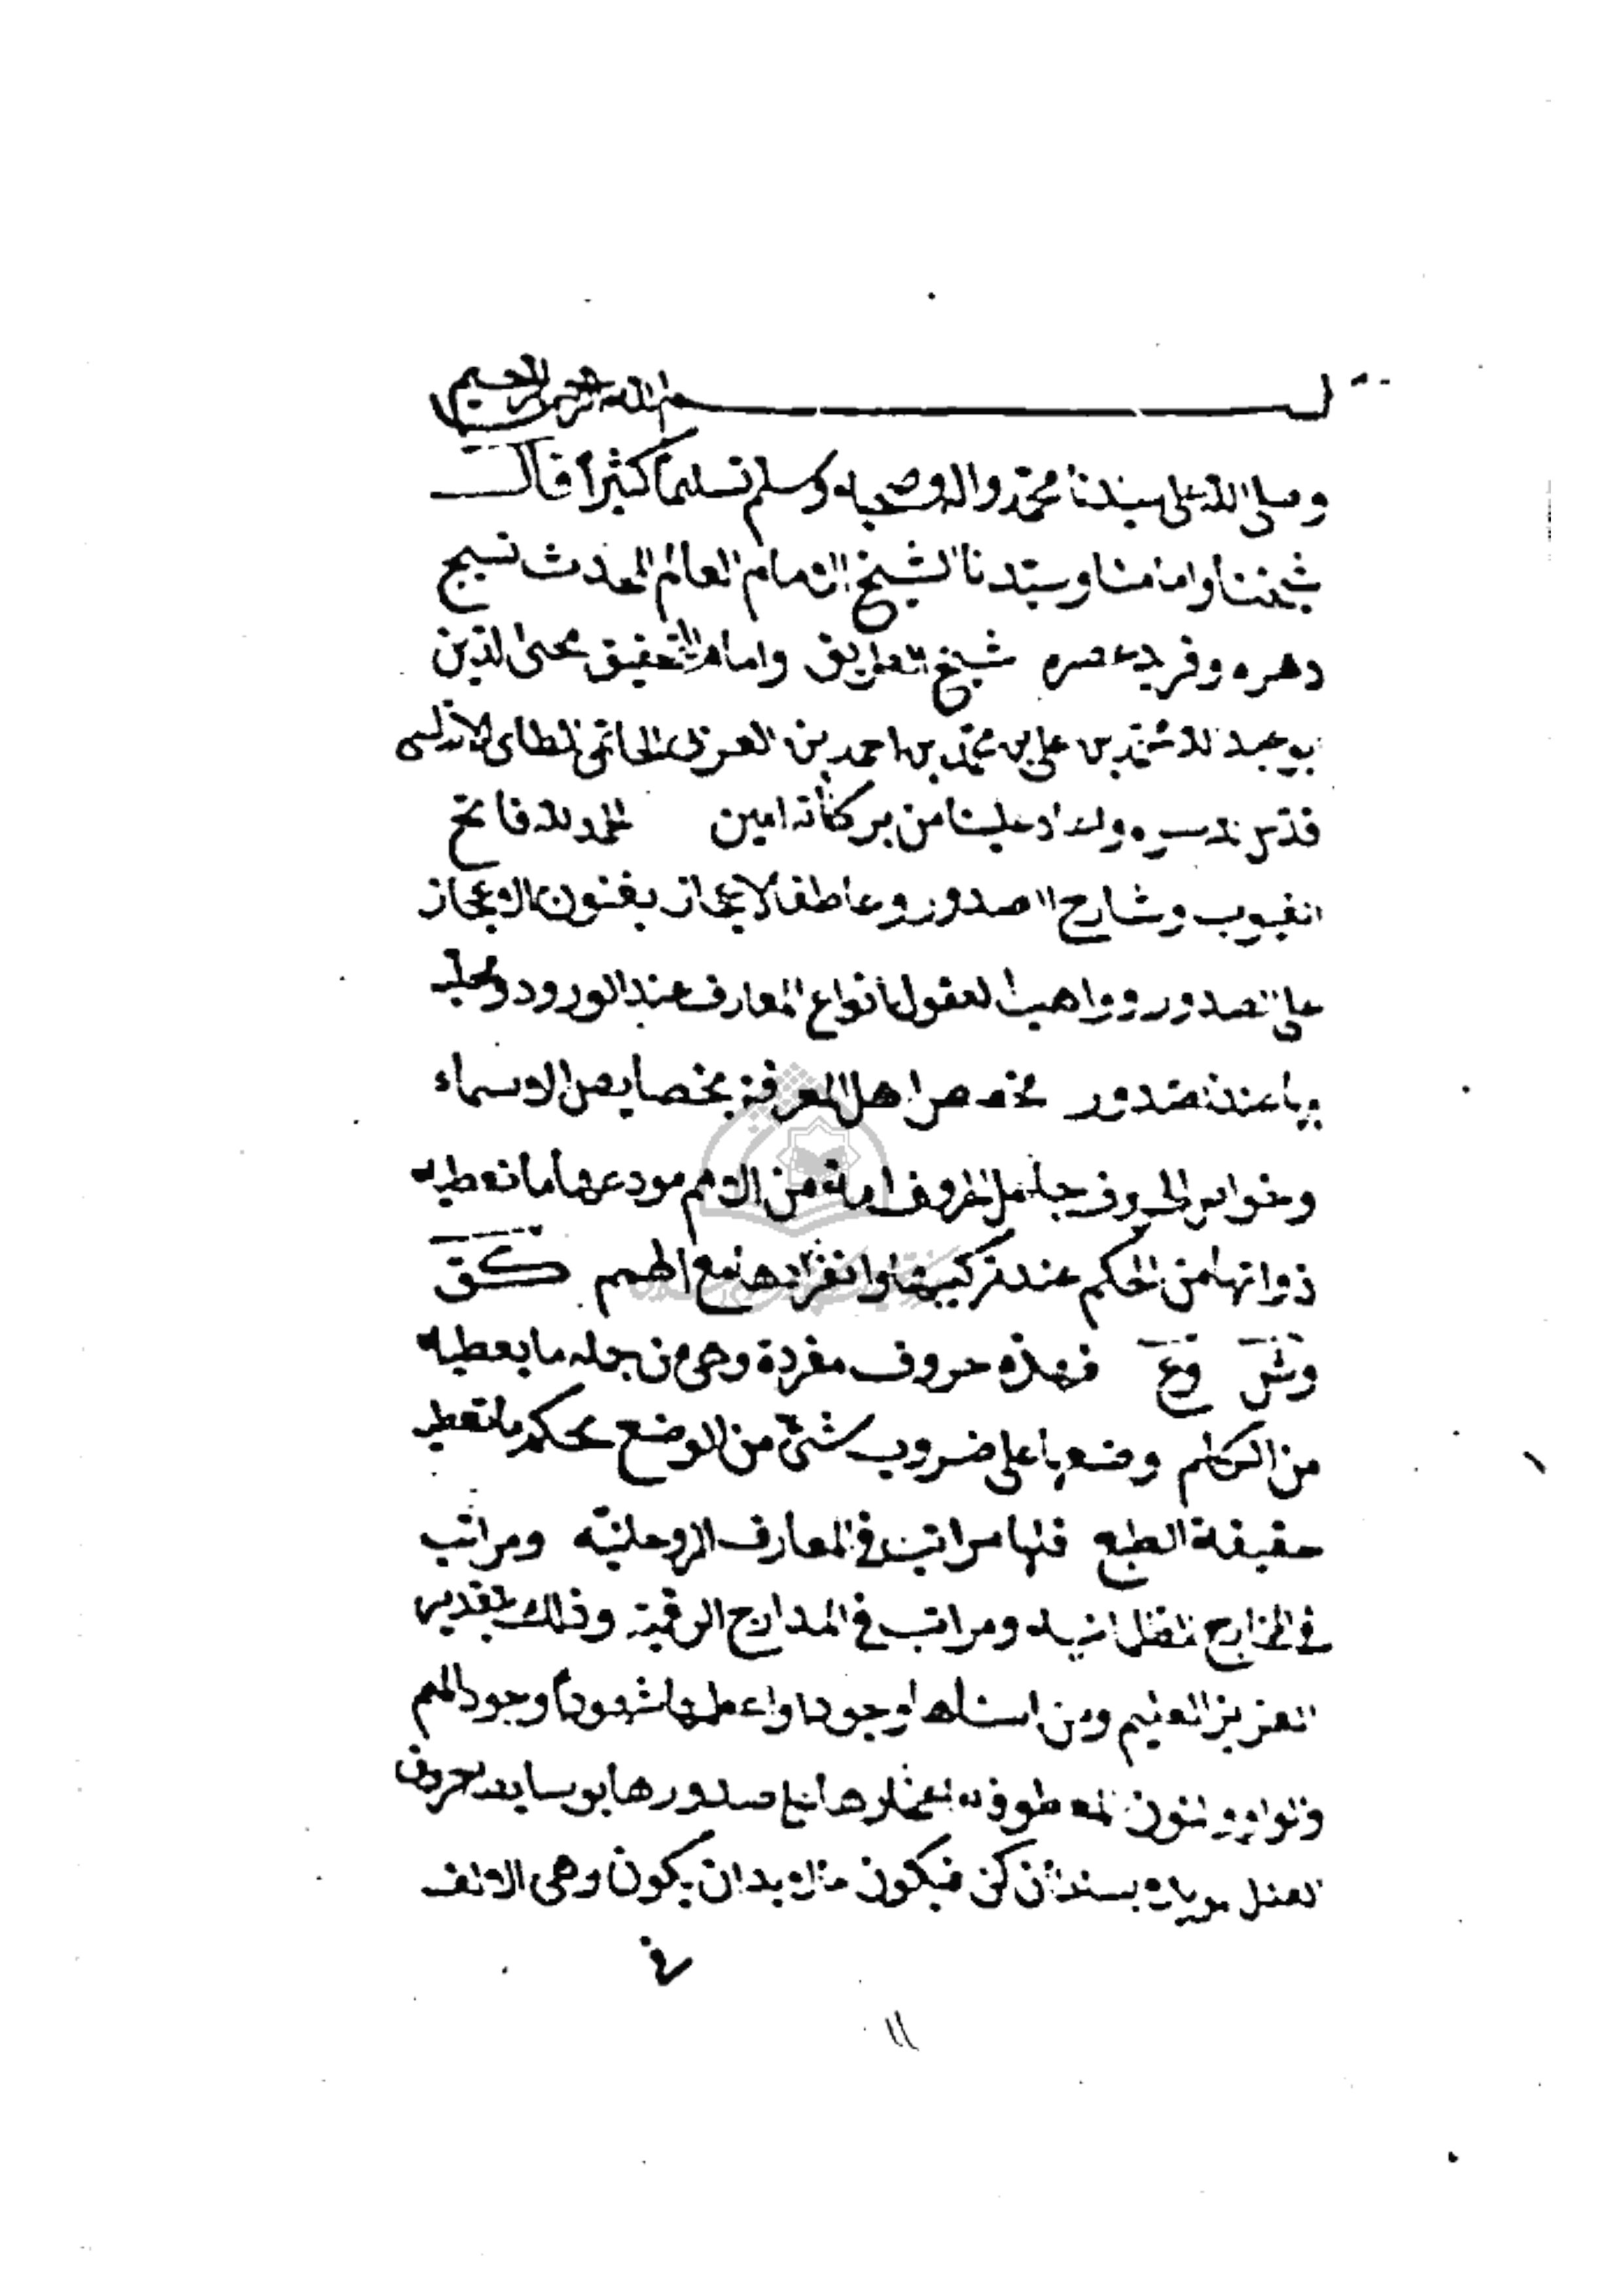 بسم الله الرحمن الرحيم
وصلى الله على سيدنا محمد واله وصحبه وسلم تسليما كثيرا قال
شيخنا وامامنا وسيدنا الشيخ الامام العالم المحدث نسيج
دهره وفريد عصره شيخ الطريق وامام التحقيق محيى الدين
ابو عبد الله محمد بن على بن محمد بن احمد بن العربى الحاتمى الطاى الاندلسى
قدس سره واعاد علينا من بركاته امين الحمد لله فاتح
الغيوب وشارح الصدور وعاطف الاعجاز بفنون الاعجاز
على الصدور وواهب العقول بانواع المعارف عند الورود
بها عند الصدور مخصص اهل المعرفة بخصايص الاسماء
وخواص الحروف جاعل الحروف امة من الامم مودعها ما تعطيه
ذواتها من الحكم عند تركيبها وانفرادها مع الهمم كق
وش وع فهذه حروف مفردة وهى من جملة ما يعطيه
من الكلم وضعها على ضروب شتى من الوضع بحكم ما تعطيه
حقيقة الطبع فلها مراتب فى المعارف الروحانية ومراتب
فى المخارج ومراتب فى المدارج الرقمية وذلك بتقدير
العزيز العليم ومن اوجدها واعطاها شهودها وجود الميم
والواو والنون المعطوفة اعجازها على صدورها بوسايط حروف
العلل كن فيكون ما لا بد ان يكون وهى الالف
فى
11